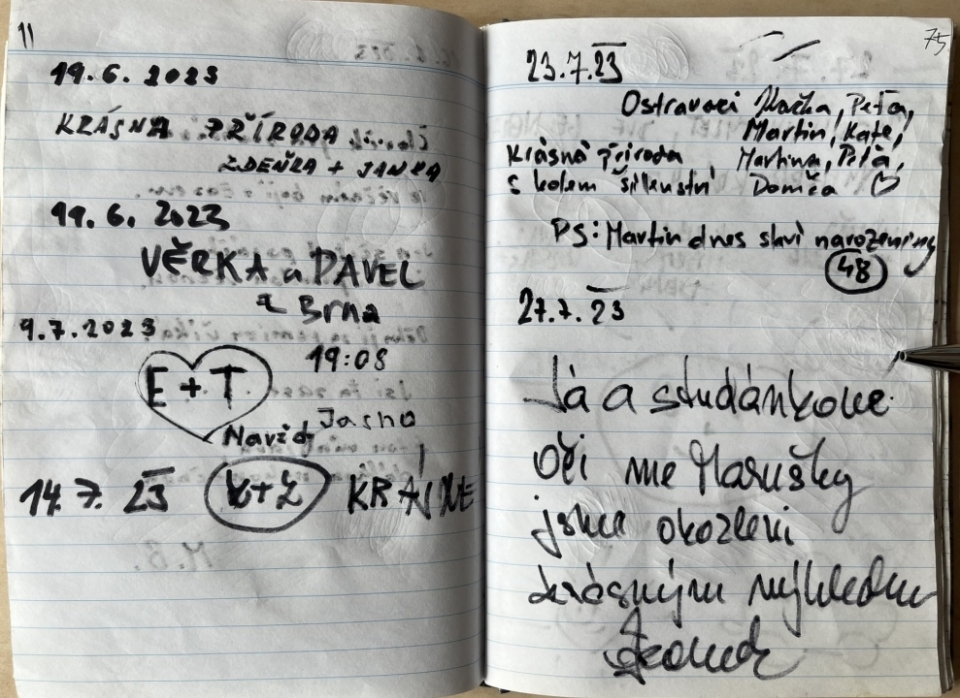 11
19. 6. 2023
KRÁSNÁ PŘÍRODA
ZDEŇKA + JANKA
19. 6. 2023
VĚRKA a PAVEL
z Brna
9.7.2023
19:08
E + T
Navždy Jasno
14.7. 23 K+Z KRÁSNE
75
23.7.23
Ostravaci Kačka, Peťa,
Martin, Kate,
Krásná příroda Martina, Péťa,
s kolem šílenství Domča ♡
PS: Martin dnes slaví narozeniny
48
27.7. 23
Já a studánkove
oči me Marušky
jsme okozleni
krásným výhledem